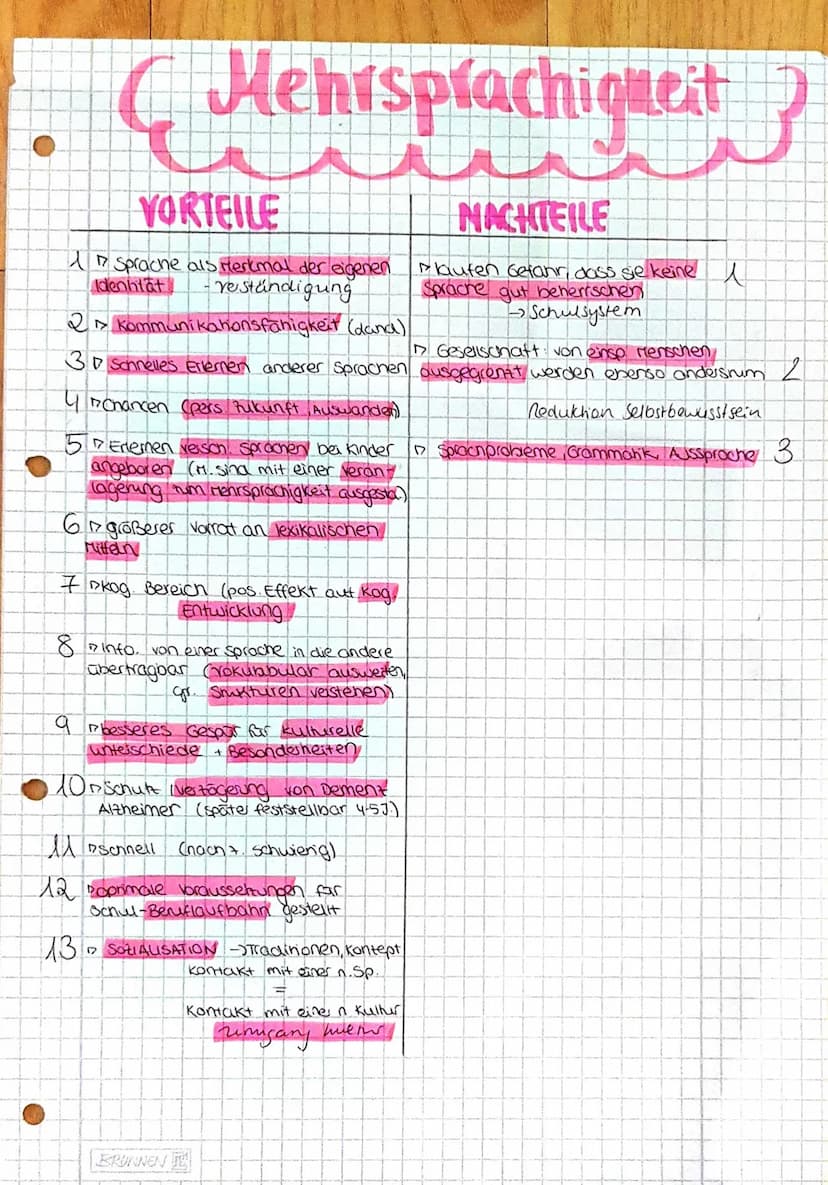 Mehrsprachigkeit
VORTEILE
1 ▷ Sprache als Merkmal der eigenen
Identität - Verständigung
2 ▷ Kommunikationsfähigkeit (danci)
3 ▷ Schnelles Erlernen anderer Sprachen
4 ▷ Chancen (pers. Zukunft, Auswandern)
5 ▷ Erlernen versch. Sprachen bei Kinder
angeboren (M. sind mit einer Veran-
lagerung zum Mehrsprachigkeit ausgesta.)
6 ▷ größerer Vorrat an lexikalischen
Mitteln
7 ▷ Kog. Bereich (pos. Effekt auf Kog.
Entwicklung)
8 ▷ Info. von einer Sprache in die andere
übertragbar (Vokurabular ausweiten,
gr. Strukturen verstehen)
9 ▷ besseres Gespür für kulturelle
Unterschiede + Besonderheiten
10 ▷ Schutz / Verzögerung von Demenz
Alzheimer (später feststellbar 4-5J.)
11 ▷ schnell (nach 7. schwierig)
12 ▷ optimale Voraussetzungen für
Schul-Beruflaufbahn gestellt
13 ▷ SOZIALISATION → Traditionen, Konzept
Kontakt mit einer n. Sp.
=
Kontakt mit einer n. Kultur
NACHTEILE
▷ laufen Gefahr, dass sie keine 1
Sprache gut beherrschen
→ Schulsystem
▷ Gesellschaft: von einsp. Menschen
ausgegrenzt werden ebenso andersrum 2
Reduktion Selbstbewusstsein
▷ Sprachprobleme, Grammatik, Aussprache 3
BRUNNEN